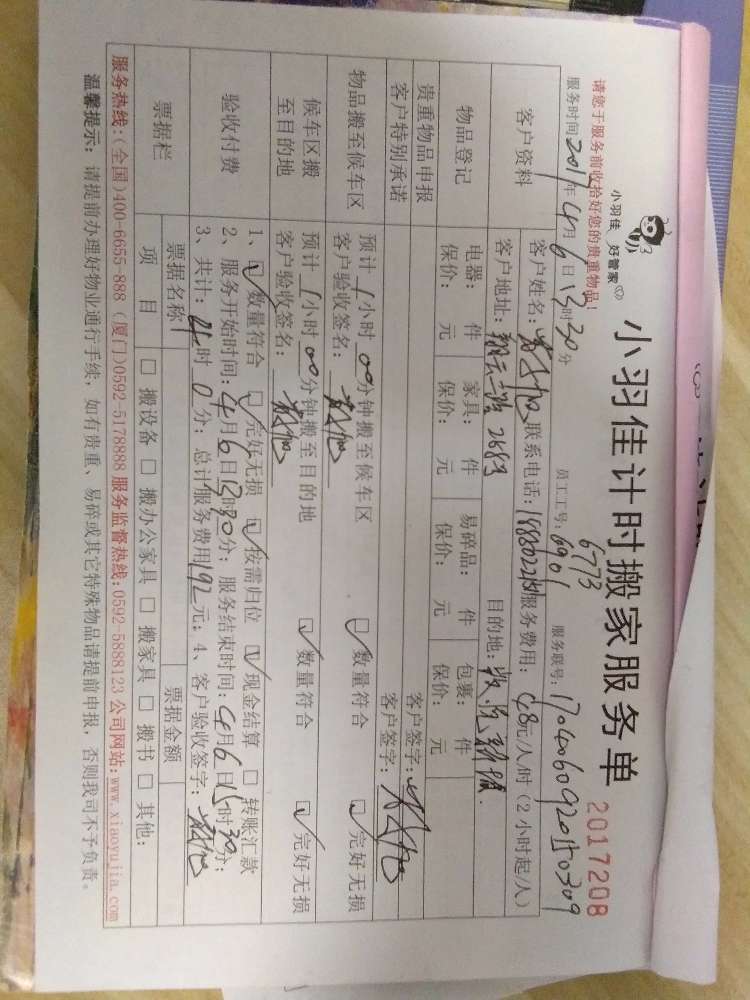 小羽佳 好管家
小羽佳计时搬家服务单 2017208
请您于服务前收拾好您的贵重物品！
员工工号：6901 6773 服务联号：
服务时间2017年4月6日13时30分
客户资料 客户姓名： 联系电话： 服务费用：48元/人时（2小时起/人）
客户地址： 268号 目的地：
物品登记 电器： 件 家具： 件 易碎品： 件 包裹： 件
保价： 元 保价： 元 保价： 元 保价： 元
贵重物品申报 客户签字：
客户特别承诺 客户签字：
物品搬至候车区 预计1小时00分钟搬至候车区 数量符合 完好无损
客户验收签名：
候车区搬至目的地 预计1小时00分钟搬至目的地 数量符合 完好无损
客户验收签名：
验收付费 1、 数量符合 完好无损 按需归位 现金结算 转账汇款
2、服务开始时间：4月6日13时30分；服务结束时间：4月6日15时30分；
3、共计： 时0分；总计服务费用192元；4、客户验收签字：
票据栏 票据名称 票据金额
项目 搬设备 搬办公家具 搬家具 搬书 其他：
服务热线：(全国)400-6655-888 (厦门)0592-5178888 服务监督热线：0592-5888123 公司网站：www.xiaoyujia.com
温馨提示：请提前办理好物业通行手续，如有贵重、易碎或其它特殊物品请提前申报，否则我司不予负责。